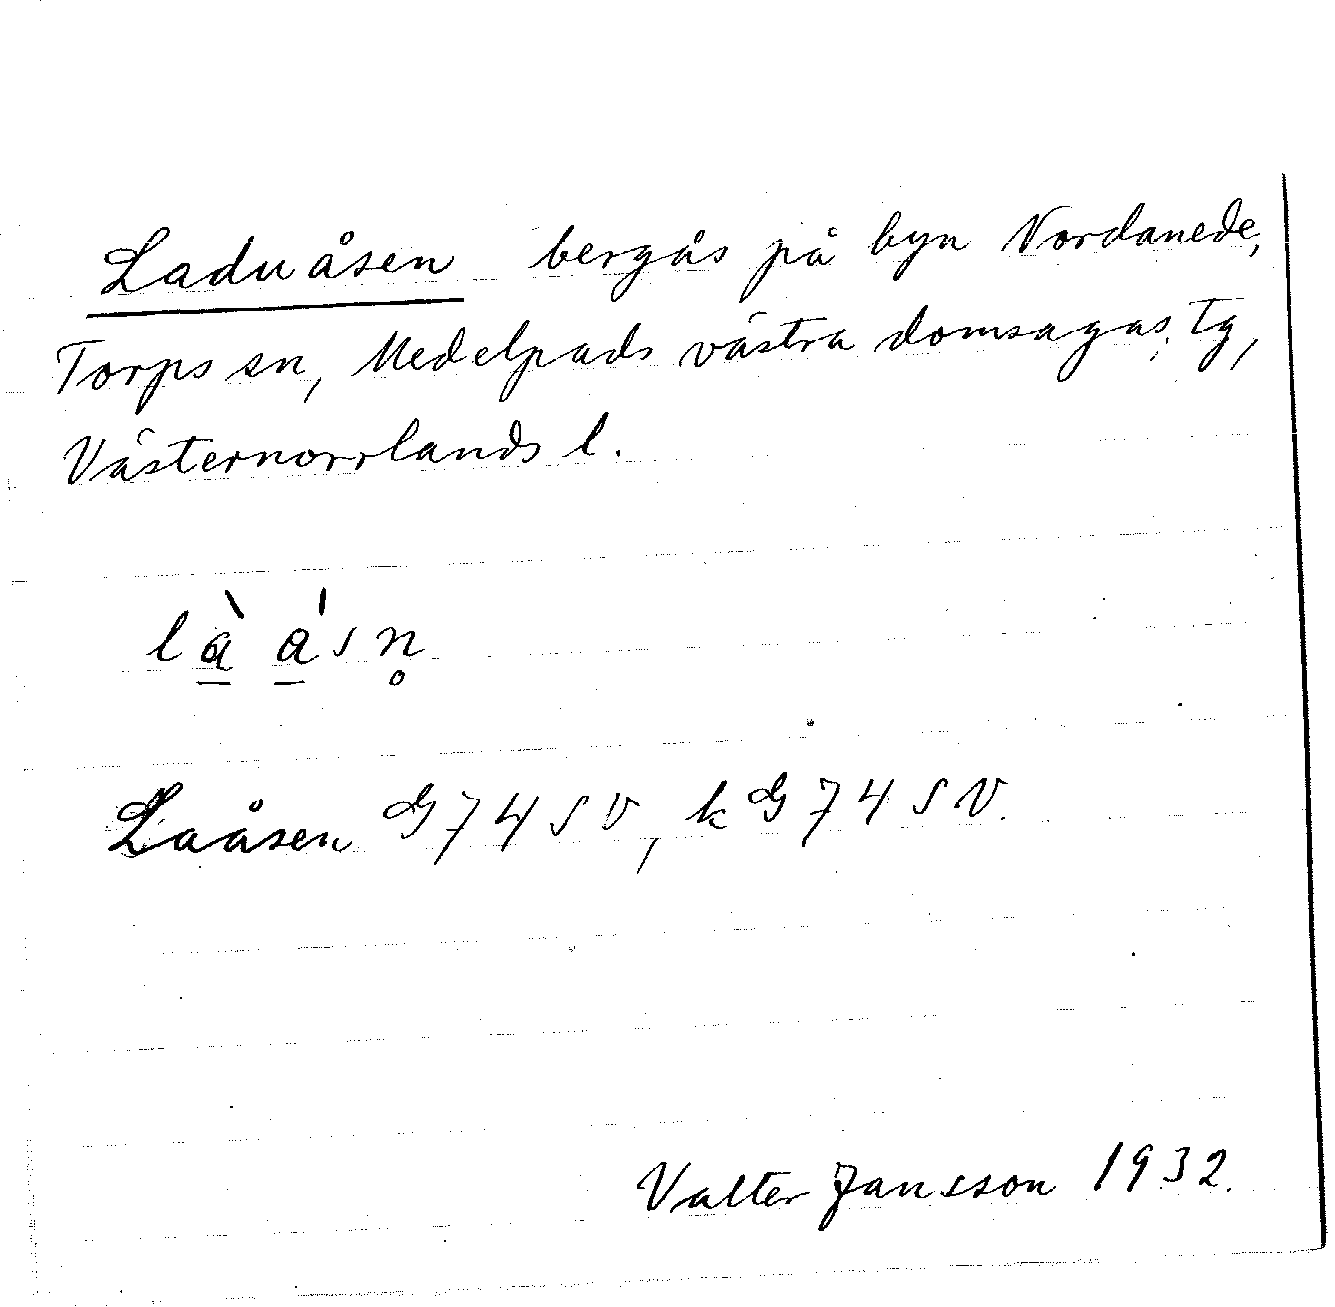 Laduåsen bergås på byn Nordanede,
Torps sn, Medelpads västra domsagas tg,
Västernorrlands l.
l à̱ á̱ s n̥
Laåsen G74SV, kG74SV.
Valter Jansson 1932.